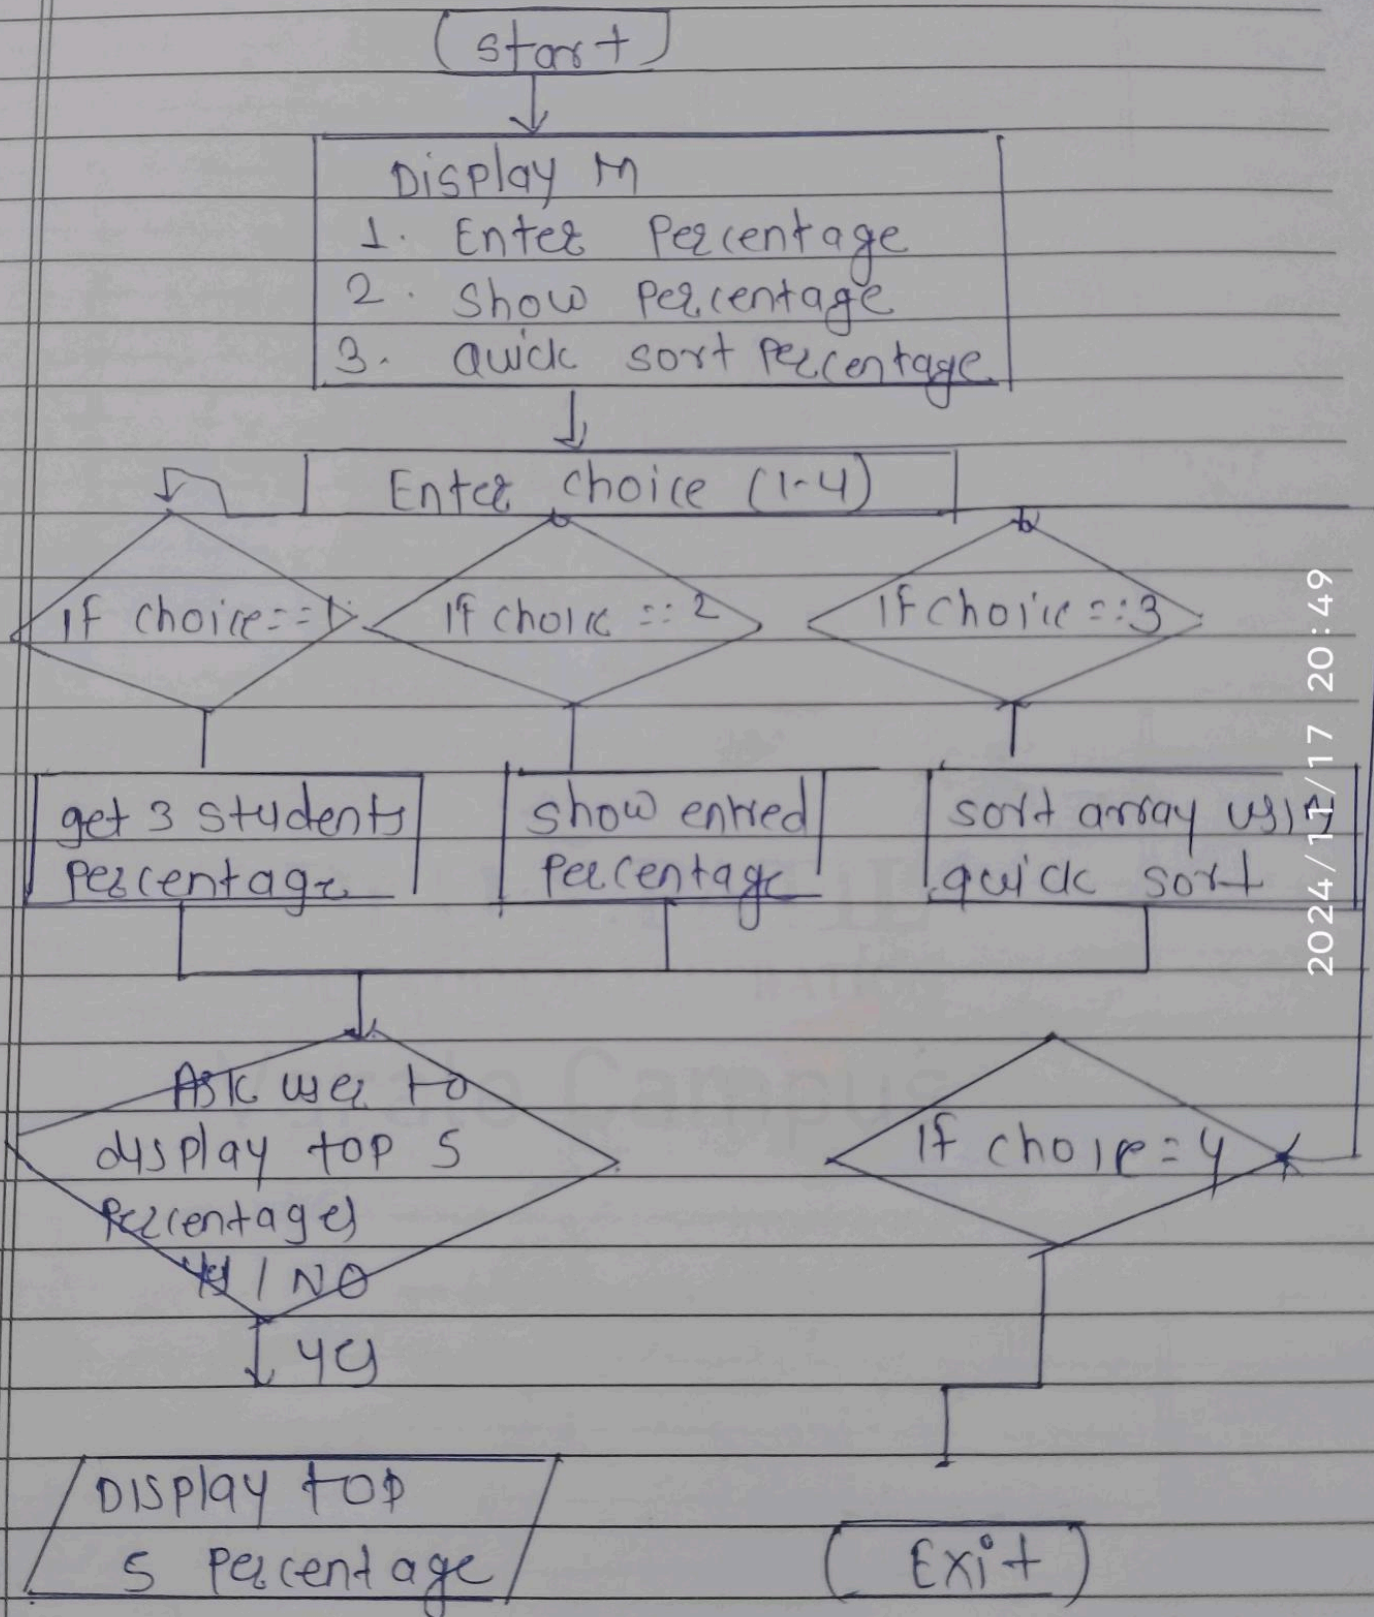 Start
Display M
1. Enter Percentage
2. Show Percentage
3. Quick sort Percentage
Enter choice (1-4)
If choice==1
If choice == 2
If choice ==3
get 3 students
Percentage
show entred
Percentage
sort array using
quick sort
Ask user to
display top 5
Percentages
Yes / NO
Yes
If choice=4
Display top
5 Percentage
Exit
2024/11/17 20:49
Campus